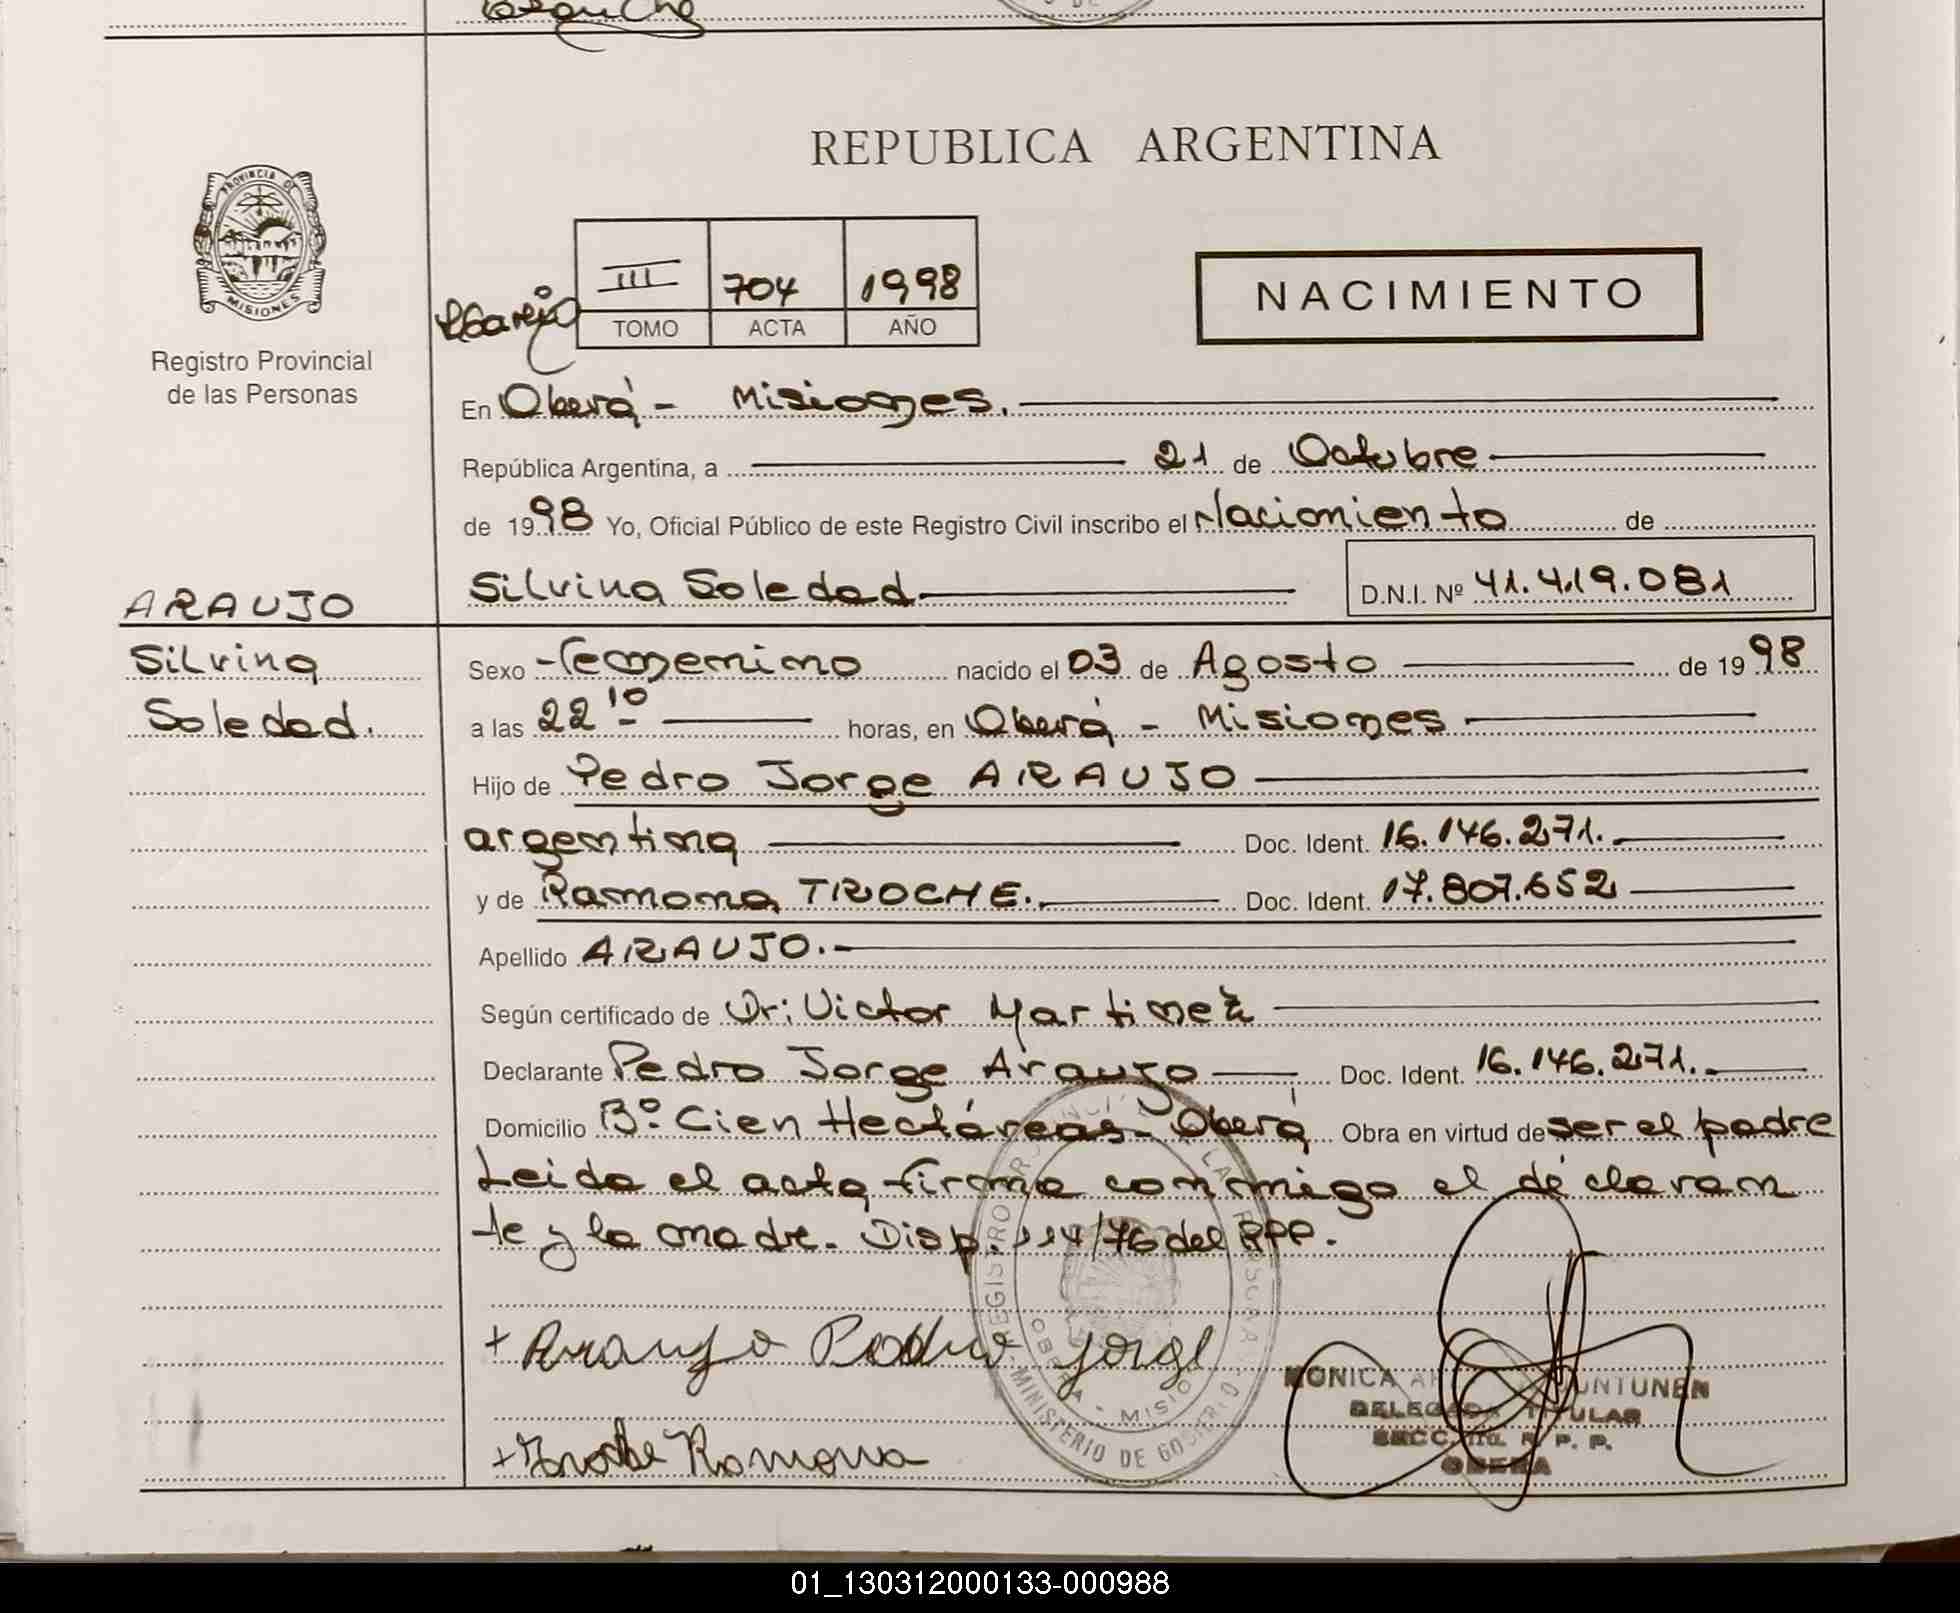 REPUBLICA ARGENTINA
PROVINCIA DE
MISIONES
Registro Provincial
de las Personas
III 704 1998
TOMO ACTA AÑO
NACIMIENTO
En Oberá - Misiones.
República Argentina, a 21 de Octubre
de 1998 Yo, Oficial Público de este Registro Civil inscribo el Nacimiento de
Silvina Soledad D.N.I. Nº 41.419.081
ARAUJO
Silvina
Soledad.
Sexo femenino nacido el 03 de Agosto de 1998
a las 22 10 horas, en Oberá - Misiones
Hijo de Pedro Jorge ARAUJO
argentina Doc. Ident. 16.146.271.
y de Ramona TROCHE. Doc. Ident. 17.807.652
Apellido ARAUJO.
Según certificado de Dr: Victor Martinez
Declarante Pedro Jorge Araujo Doc. Ident. 16.146.271.
Domicilio Bº. Cien Hectáreas - Oberá Obra en virtud de ser el padre
Leida el acta firma conmigo el declaran
te y la madre. Disp. 114/76 del RPP.
+ Araujo Pedro Jorge
+ Troche Ramona
MONICA
DELEGADA TITULAR
R. P. P.
OBERA
MINISTERIO DE
01_130312000133-000988